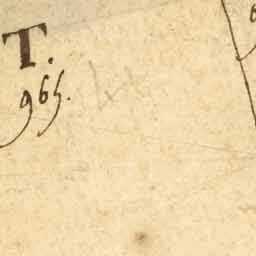 T.
965.